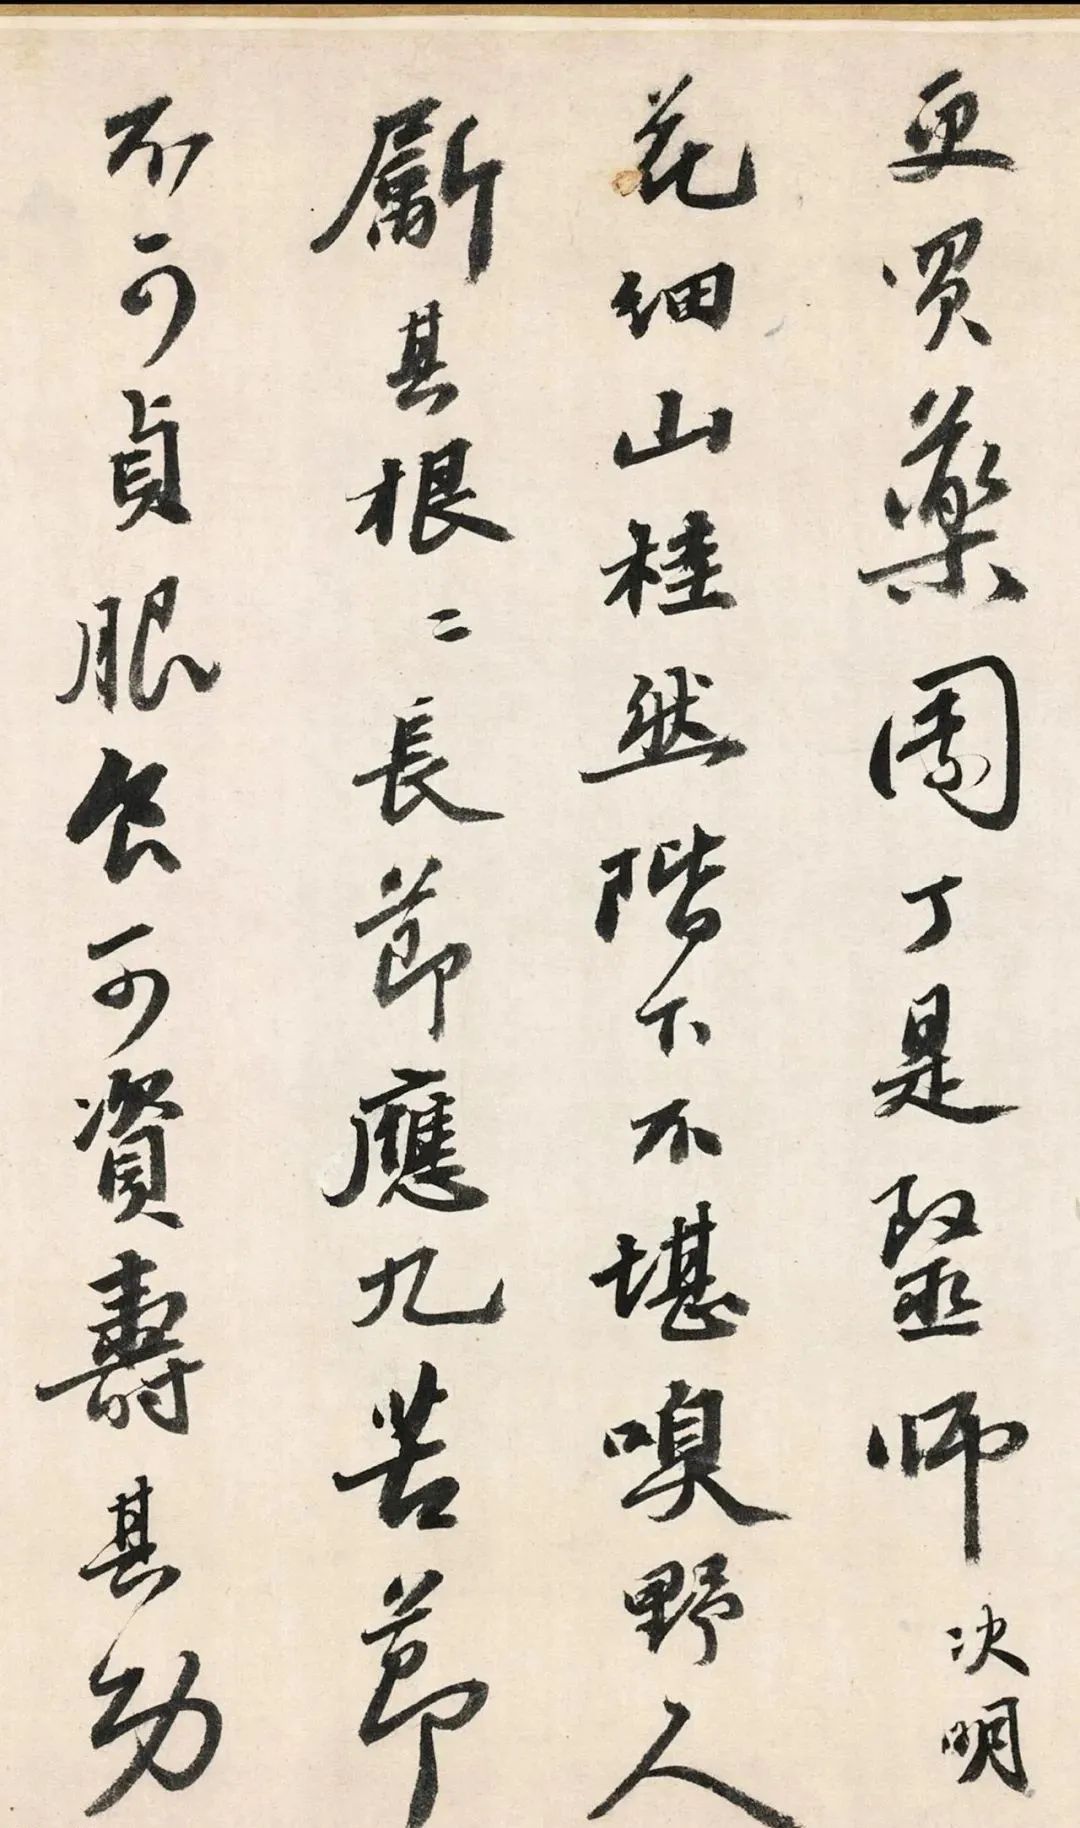 更買藥園丁是醫師決明
花細山桂然階下不堪嗅野人
斸其根二長節應九苦節
不可貞服食可資壽其功